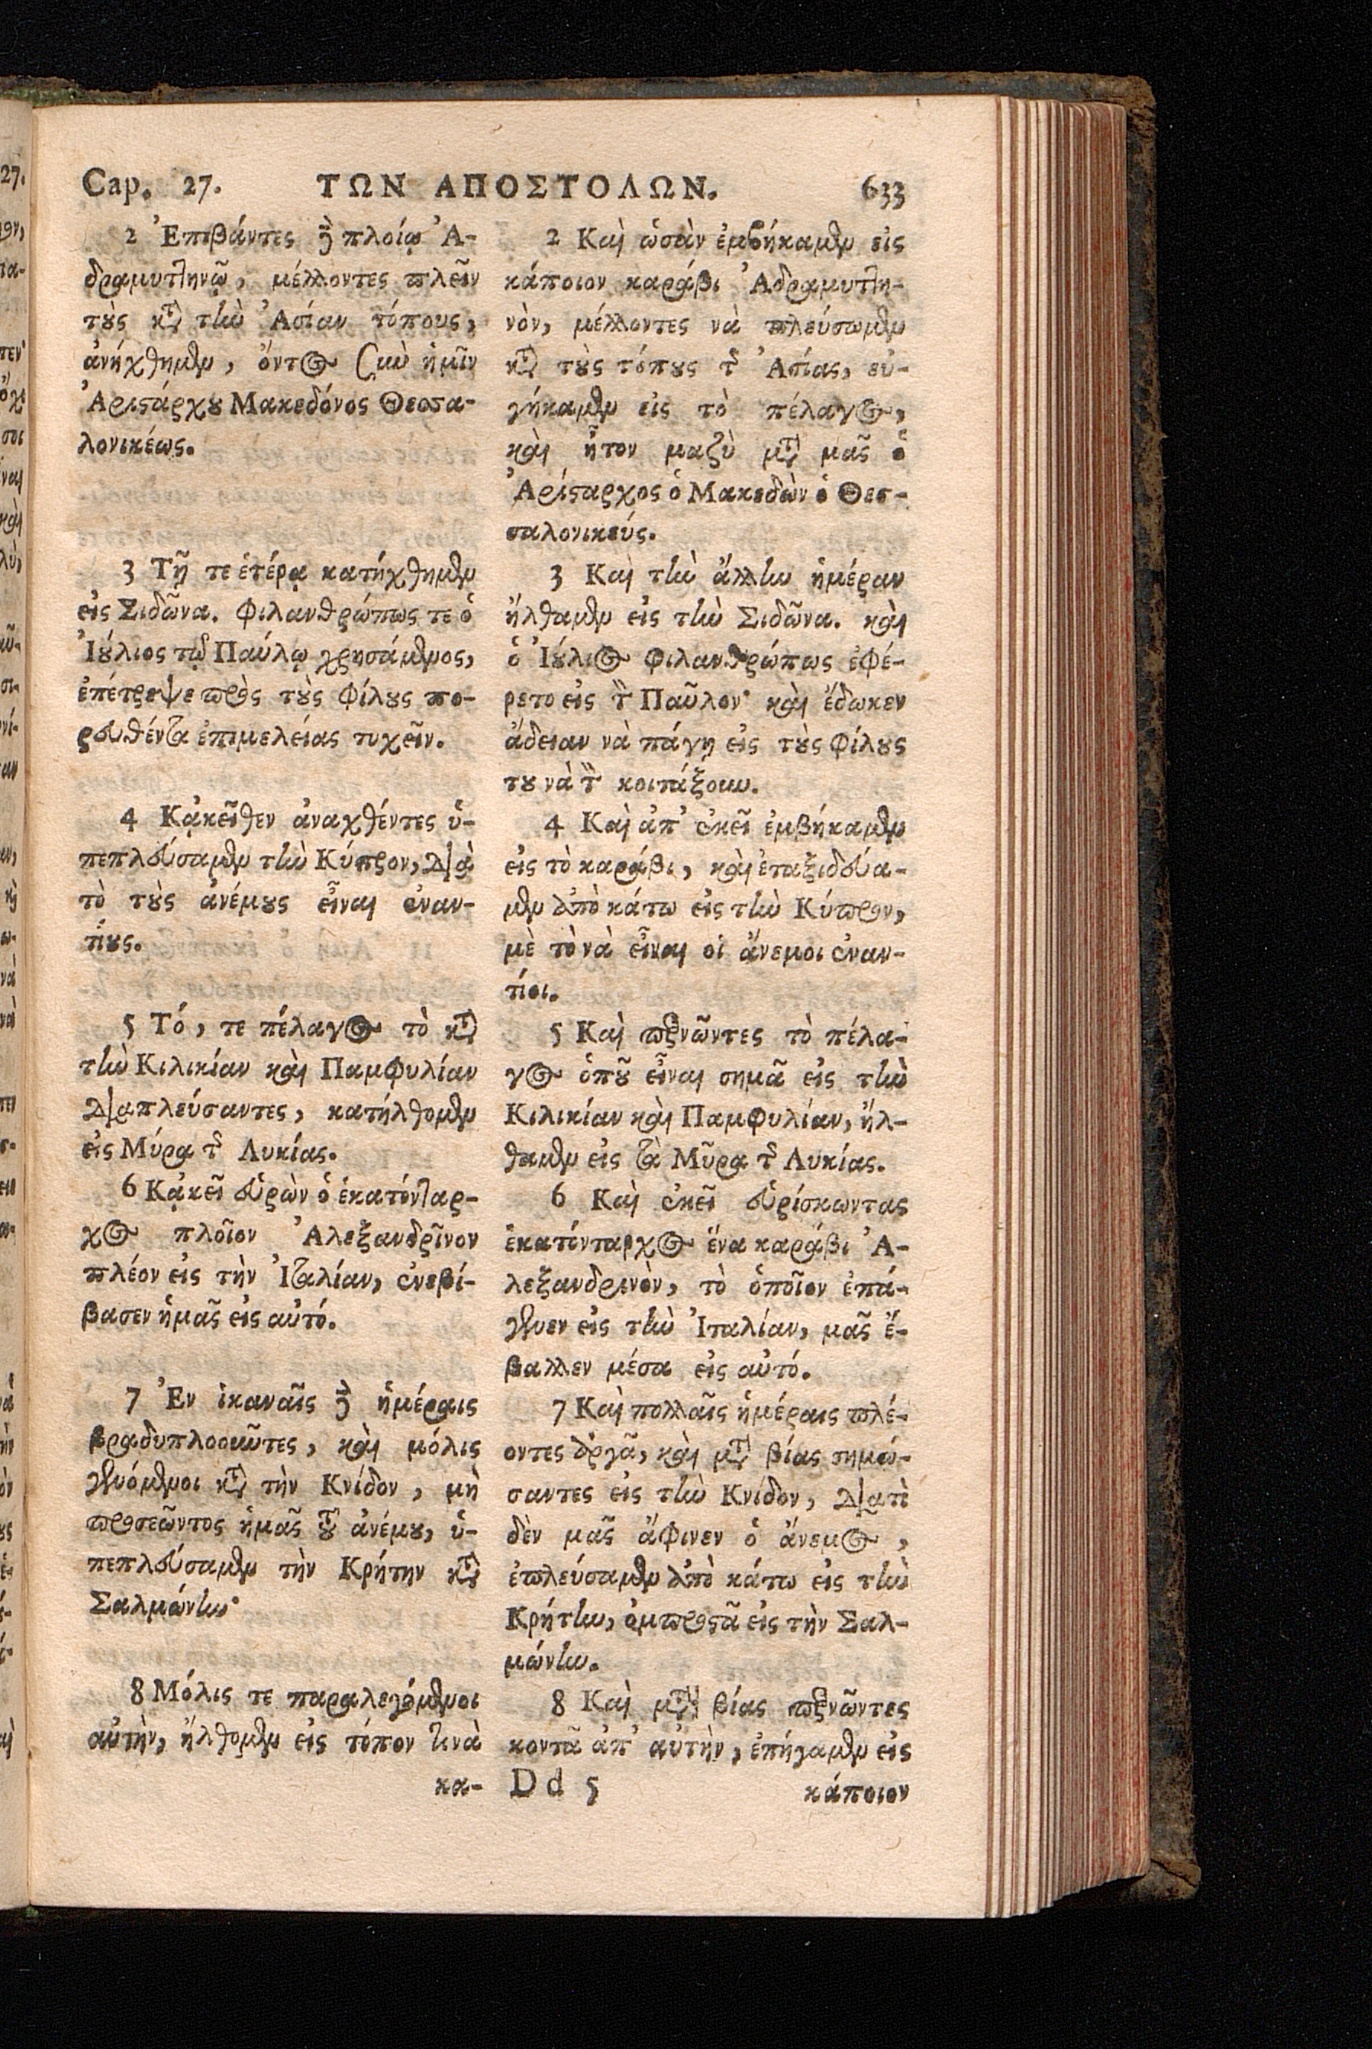 Cap. 27. ΤΩΝ ΑΠΟΣΤΟΛΩΝ. 633
2 Ἐπιβάντες δὲ πλοίῳ Ἀ-
δραμυττηνῷ, μέλλοντες πλεῖν
τοὺς κατὰ τὴν Ἀσίαν τόπους,
ἀνήχθημεν, ὄντος σὺν ἡμῖν
Ἀριστάρχου Μακεδόνος Θεσσα-
λονικέως.
3 Τῇ τε ἑτέρᾳ κατήχθημεν
εἰς Σιδῶνα. Φιλανθρώπως τε ὁ
Ἰούλιος τῷ Παύλῳ χρησάμενος,
ἐπέτρεψε πρὸς τοὺς φίλους πο-
ρευθέντα ἐπιμελείας τυχεῖν.
4 Κᾀκεῖθεν ἀναχθέντες ὑ-
πεπλεύσαμεν τὴν Κύπρον, διὰ
τὸ τοὺς ἀνέμους εἶναι ἐναν-
τίους.
5 Τό, τε πέλαγος τὸ κατὰ
τὴν Κιλικίαν καὶ Παμφυλίαν
διαπλεύσαντες, κατήλθομεν
εἰς Μύρα τῆς Λυκίας.
6 Κᾀκεῖ εὑρὼν ὁ ἑκατόνταρ-
χος πλοῖον Ἀλεξανδρῖνον
πλέον εἰς τὴν Ἰταλίαν, ἐνεβί-
βασεν ἡμᾶς εἰς αὐτό.
7 Ἐν ἱκαναῖς δὲ ἡμέραις
βραδυπλοοῦντες, καὶ μόλις
γενόμενοι κατὰ τὴν Κνίδον, μὴ
προσεῶντος ἡμᾶς τοῦ ἀνέμου, ὑ-
πεπλεύσαμεν τὴν Κρήτην κατὰ
Σαλμώνην·
8 Μόλις τε παραλεγόμενοι
αὐτὴν, ἤλθομεν εἰς τόπον τινὰ
κα-
2 Καὶ ὡσὰν ἐμβήκαμεν εἰς
κάποιον καράβι Ἀδραμυττη-
νὸν, μέλλοντες νὰ πλεύσωμεν
κατὰ τοὺς τόπους τῆς Ἀσίας, εὐ-
γήκαμεν εἰς τὸ πέλαγος,
καὶ ἦτον μαζὺ μετὰ μᾶς ὁ
Ἀρίσταρχος ὁ Μακεδὼν ὁ Θεσ-
σαλονικεύς.
3 Καὶ τὴν ἄλλην ἡμέραν
ἤλθαμεν εἰς τὴν Σιδῶνα. καὶ
ὁ Ἰούλιος φιλανθρώπως ἐφέ-
ρετο εἰς τὸν Παῦλον· καὶ ἔδωκεν
ἄδειαν νὰ πάγῃ εἰς τοὺς φίλους
του νὰ τὸν κοιτάξουν.
4 Καὶ ἀπ' ἐκεῖ ἐμβήκαμεν
εἰς τὸ καράβι, καὶ ἐταξιδεύα-
μεν ἀπὸ κάτω εἰς τὴν Κύπρον,
μὲ τὸ νὰ εἶναι οἱ ἄνεμοι ἐναν-
τίοι.
5 Καὶ περνῶντες τὸ πέλα-
γος ὁποῦ εἶναι σημᾶ εἰς τὴν
Κιλικίαν καὶ Παμφυλίαν, ἤλ-
θαμεν εἰς τὰ Μῦρα τῆς Λυκίας.
6 Καὶ ἐκεῖ εὑρίσκωντας
ἑκατόνταρχος ἕνα καράβι Ἀ-
λεξανδρινὸν, τὸ ὁποῖον ἐπά-
γενεν εἰς τὴν Ἰταλίαν, μᾶς ἔ-
βαλλεν μέσα εἰς αὐτό.
7 Καὶ πολλαῖς ἡμέραις πλέ-
οντες ἀργᾶ, καὶ μετὰ βίας σημώ-
σαντες εἰς τὴν Κνίδον, διατὶ
δὲν μᾶς ἄφινεν ὁ ἄνεμος,
ἐπλεύσαμεν ἀπὸ κάτω εἰς τὴν
Κρήτην, ὀμπροστᾶ εἰς τὴν Σαλ-
μώνην.
8 Καὶ μετὰ βίας περνῶντες
κοντᾶ ἀπ' αὐτὴν, ἐπήγαμεν εἰς
D d 5 κάποιον